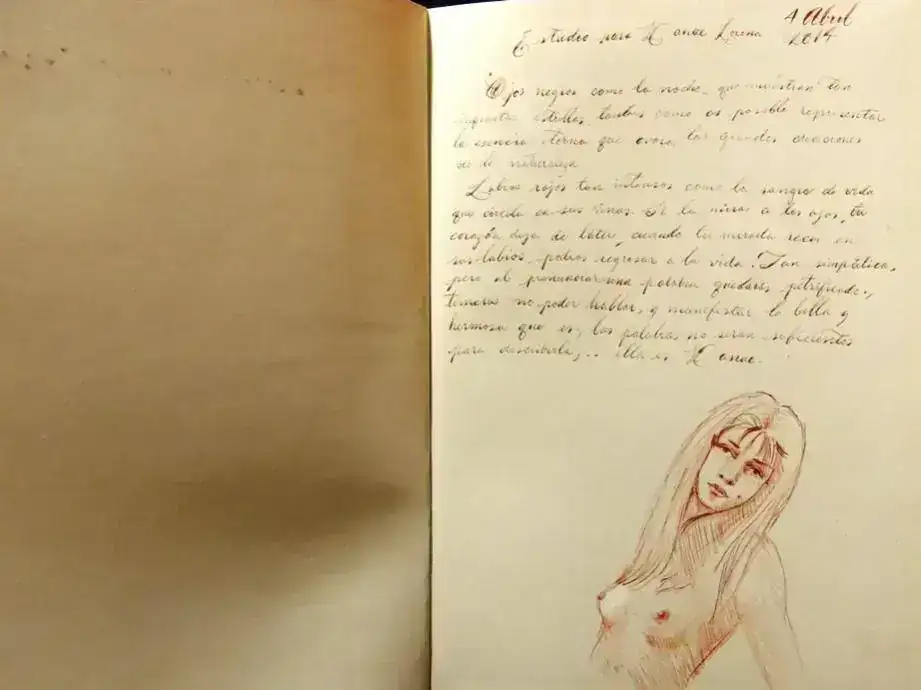 4 Abril
2014
Estudio para Hanae Lorena
Ojos negros como la noche, que muestran tan
estrellas, tantas como es posible representar
la esencia eterna que las grandes creaciones
de la naturaleza
Labios rojos tan intensos como la sangre de vida
que circula en sus venas. Si la miras a los ojos, tu
corazón deja de latir, cuando tu mirada recae en
sus labios, podras regresar a la vida. Tan simpática,
pero al pronunciar una palabra quedaras petrificado,
temeras no poder hablar, y manifestar lo bella y
hermosa que es, las palabras no seran suficientes
para describirla, .. ella es Hanae.